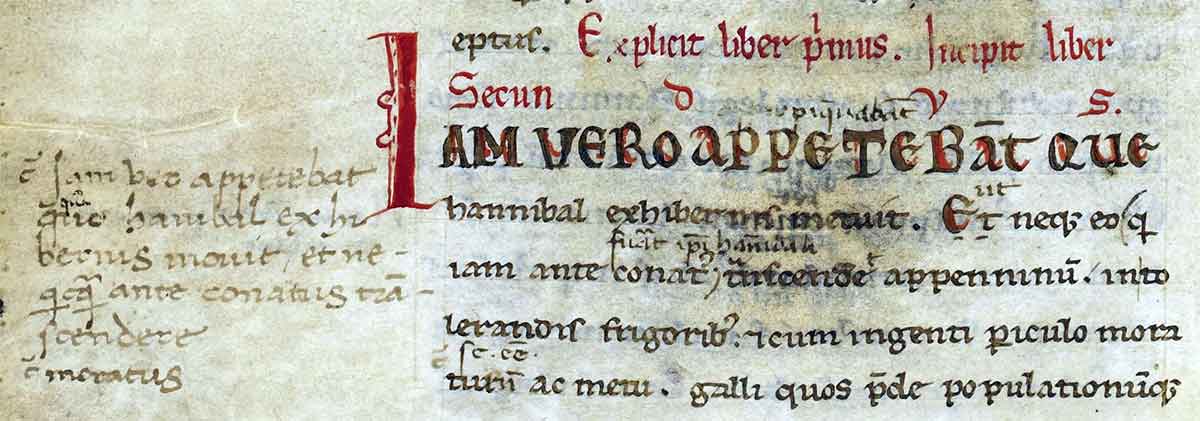 eptus. Explicit liber p̄mus. Incipit liber
Secun d v s.
IAM VERO APPETEBĀT QUE
ut
hannibal exhibernis mouit. Et neq; eo q
iam ante conat, t̃nscende appenninū. into
lerandis frigorib;. & cum ingenti piculo mora
sc. eē.
turū ac metu. galli quos p̄de populationūq;
Iam vero appetebat
que hanibal ex hi
bernis mouit, et ne-
q̄cq̄ ante conatus trā-
scendere
moratus